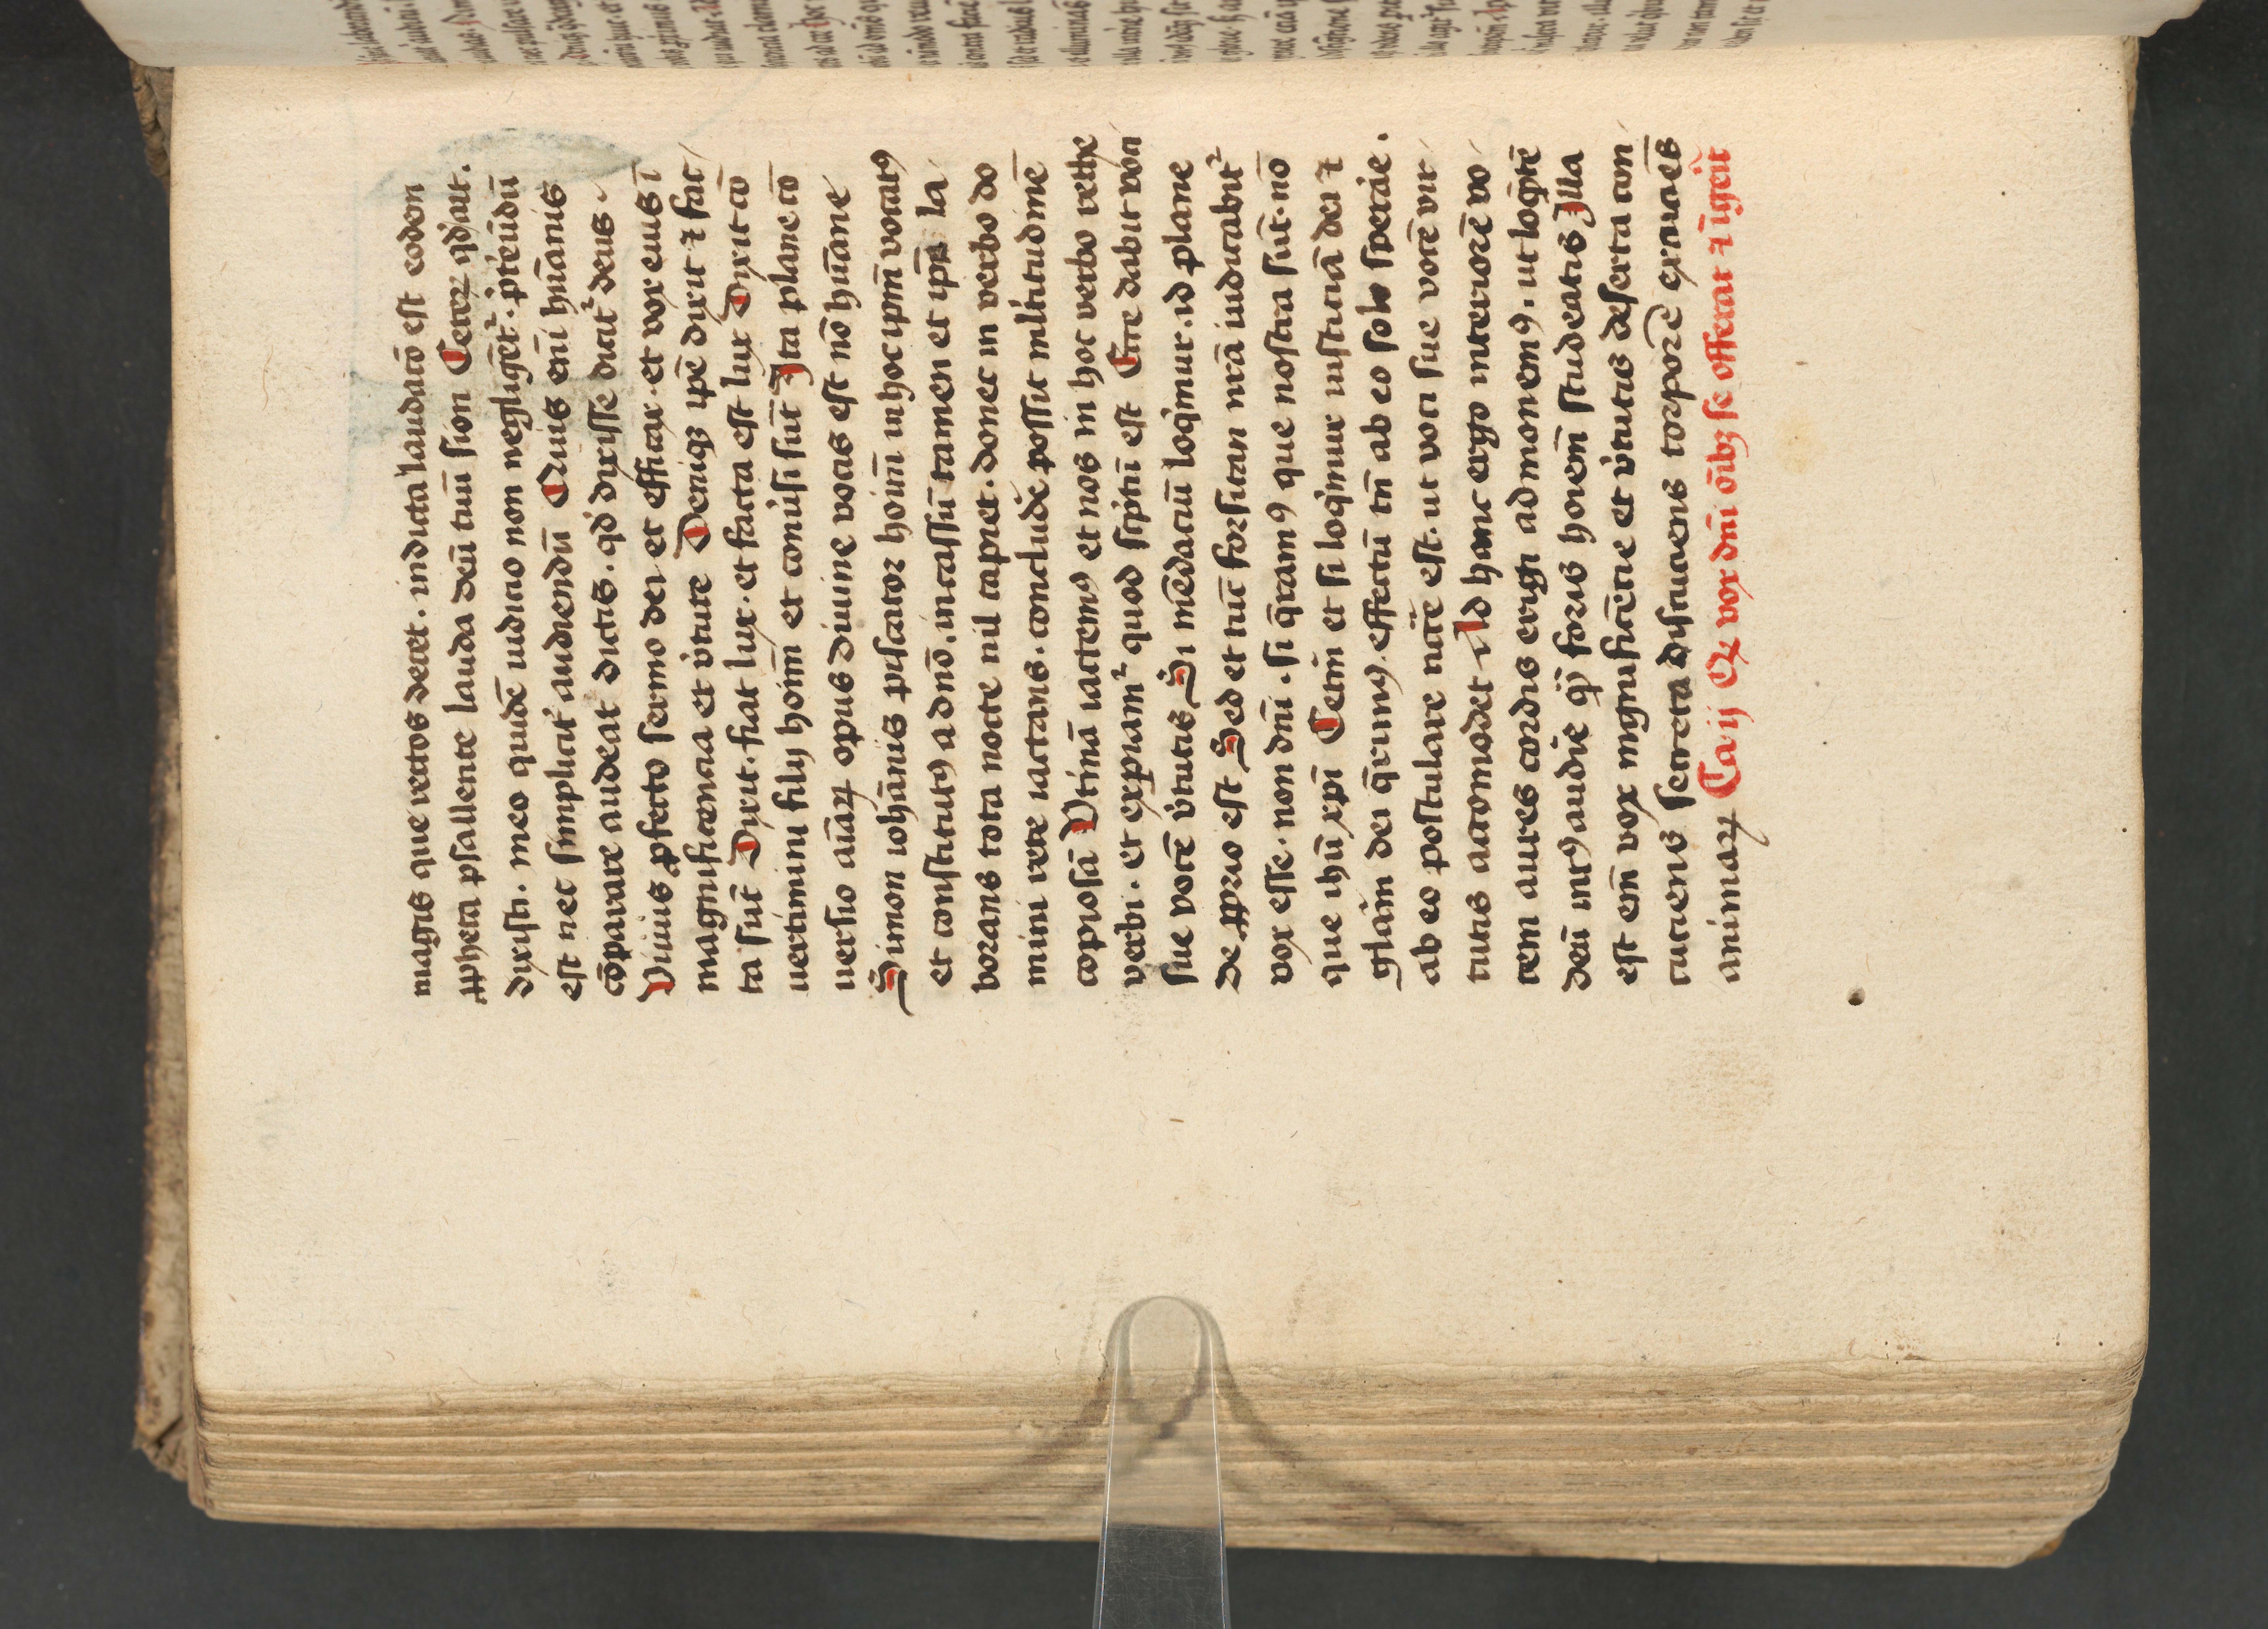 magis que rectos decet. indicta laudatō est eodem
ꝓpheta psallente lauda deū tuū sion Ceterꝝ qd̓ aut.
dixisti. meo quidē iudicio non negligēt᷑. p̓tēudū
est nec simplicit̓ audiendū Quis em̄ hūanis
cōparare audeat dictis. qd̓ dixisse dicit᷑ deus.
Viuus ꝓfecto sermo dei et efficax. et vox eius ī
magnificencia et v̓tute Deniqꝫ ip̄e dixit ⁊ fac
ta sūt Dixit. fiat lux. et facta est lux Dixit cō
uertimini filij hoīm et conūsi sūt Ita plane cō
uersio aīaꝝ opus diuine vocis est nō hūane
Simon iohānis piscator hoīm in hoc ip̄m vocatꝰ
et constitutꝰ a dnō. incassū tamen et ip̄e la
borans tota nocte nil capiet. donec in verbo do
mini rete iactans. concludē possit ml̓titudinē
copiosā Vtinā iactemꝰ et nos in hoc verbo rethe
verbi. et expiam᷑ quod scp̄tū est Ecce dabit voci
sue vocē v̓tutis Si mēdaciū loqimur. id plane
de ꝓprio est Sed et tūc forsitan nr̄a iudicabit᷑
vox esse. non dn̄i. si q̄ramꝰ que nostra sūt. nō
que ihū xp̄i Cetm̄ et si loqimur iusticiā dei ⁊
glām dei q̄rimꝰ. effectū tn̄ ab eo solo sperāe.
ab eo postulare nccē est. ut voci sue vocē vir
tutis accomodet Ad hanc ergo interiorē vo
cem aures cordis erigi admonemꝰ. ut loqn̄tē
deū intꝰ audire qͣ̄ foris hoiem̄ studeatis Illa
est em̄ vox mgnificētie et v̓tutis deserta con
cuciens secreta discuciens torporē excuciēs
animaꝝ Ca ij Qꝛ vox dn̄i oībꝫ se offerat ⁊ īgerit